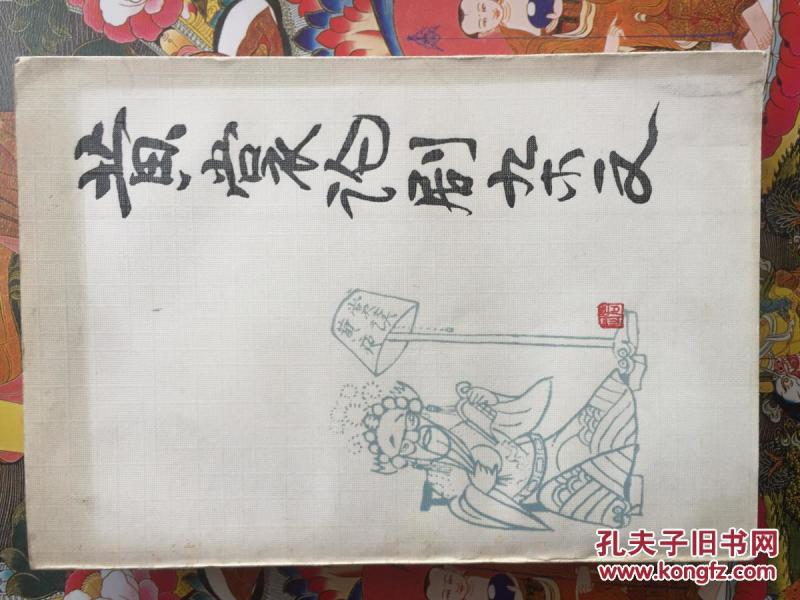 黄裳论剧杂文
孔夫子旧书网
www.kongfz.com